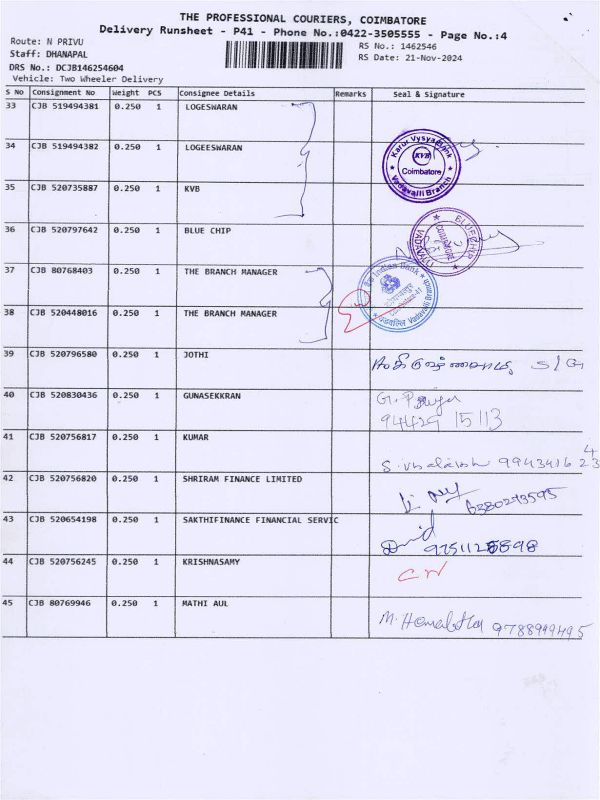 THE PROFESSIONAL COURIERS, COIMBATORE
Delivery Runsheet - P41 - Phone No.:0422-3505555 - Page No.:4
Route: N PRIVU
RS No.: 1462546
Staff: DHANAPAL
RS Date: 21-Nov-2024
DRS No.: DCJB146254604
Vehicle: Two Wheeler Delivery
S No Consignment No Weight PCS Consignee Details Remarks Seal & Signature
33 CJB 519494381 0.250 1 LOGESWARAN
34 CJB 519494382 0.250 1 LOGEESWARAN
Karur Vysya Bank
KVB
Coimbatore
Vadavalli Branch
35 CJB 520735887 0.250 1 KVB
36 CJB 520797642 0.250 1 BLUE CHIP
BLUECHIP
COIMBATORE
VADAVALLI
37 CJB 80768403 0.250 1 THE BRANCH MANAGER
Indian Bank
Vadavalli Branch
38 CJB 520448016 0.250 1 THE BRANCH MANAGER
39 CJB 520796580 0.250 1 JOTHI
40 CJB 520830436 0.250 1 GUNASEKKRAN
G. Priya
94429 15113
41 CJB 520756817 0.250 1 KUMAR
42 CJB 520756820 0.250 1 SHRIRAM FINANCE LIMITED
6380293595
43 CJB 520654198 0.250 1 SAKTHIFINANCE FINANCIAL SERVIC
44 CJB 520756245 0.250 1 KRISHNASAMY
45 CJB 80769946 0.250 1 MATHI AUL